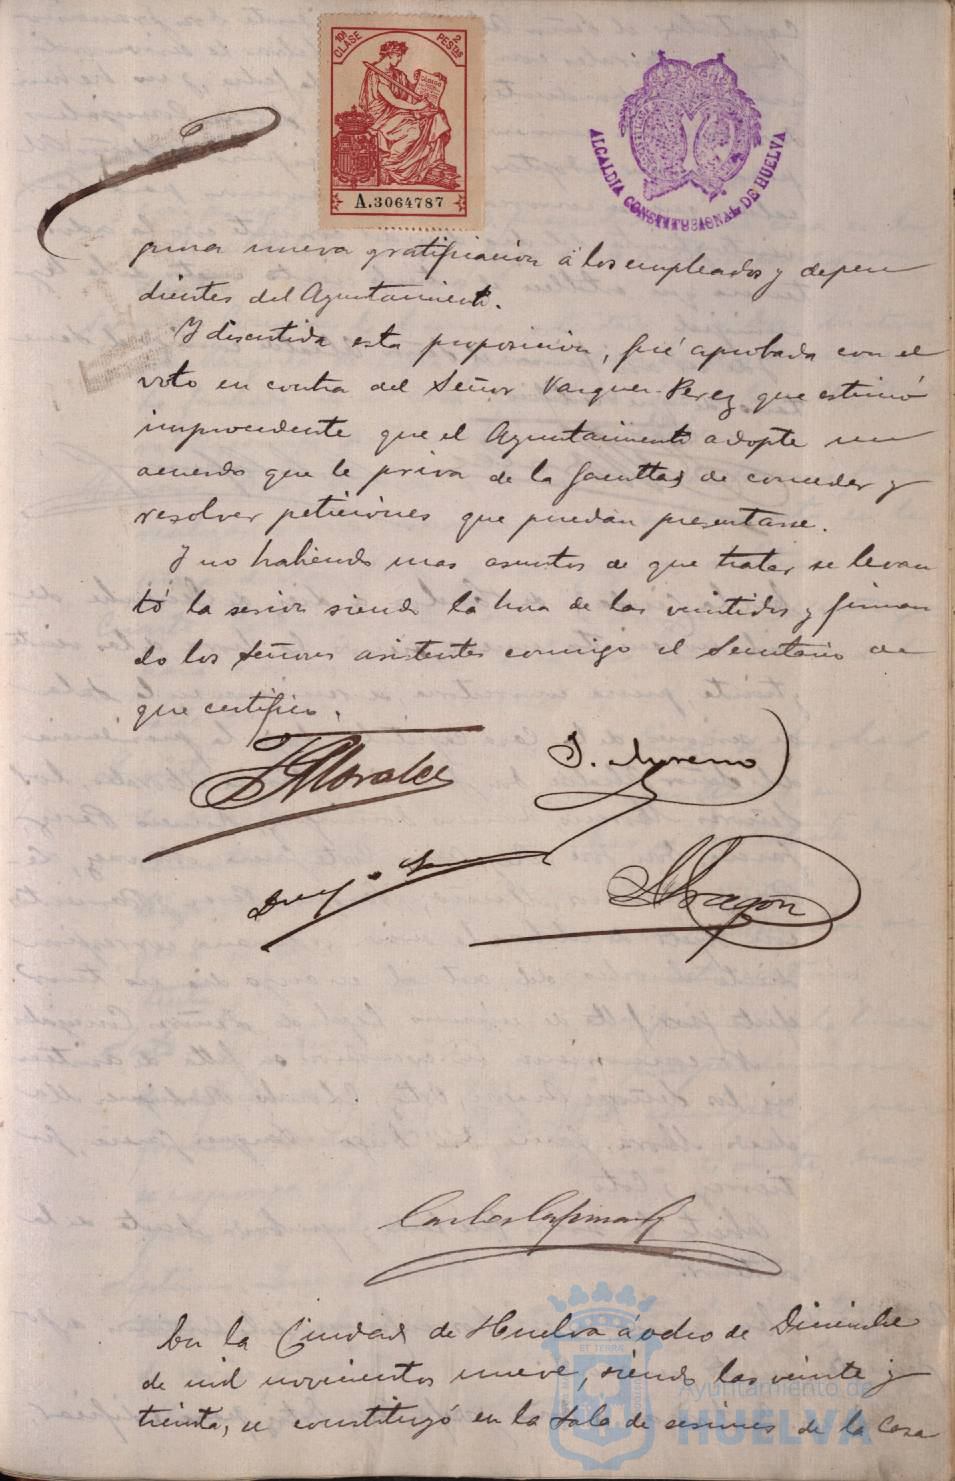 10ª CLASE
2 PESTAS
A.3064787
ALCALDIA CONSTITUCIONAL DE HUELVA
nueva gratificación á los empleados y depen
dientes del Ayuntamiento.
Y discutida esta proposicion, fué aprobada con el
voto en contra del Señor Vazquez Perez que estimó
improcedente que el Ayuntamiento adopte un
acuerdo que le priva de la facultad de conceder y
resolver peticiones que puedan presentarse.
Y no habiendo mas asuntos de que tratar se levan
tó la sesion siendo la hora de las veintidos y firman
do los Señores asistentes conmigo el Secretario de
que certifico.
Morales
J. Moreno
Aragon
Carlos
En la Ciudad de Huelva á ocho de Diciembre
de mil novecientos nueve, siendo las veinte y
treinta, se constituyó en la Sala de sesiones de la Casa
ET TERRA
Ayuntamiento de
HUELVA